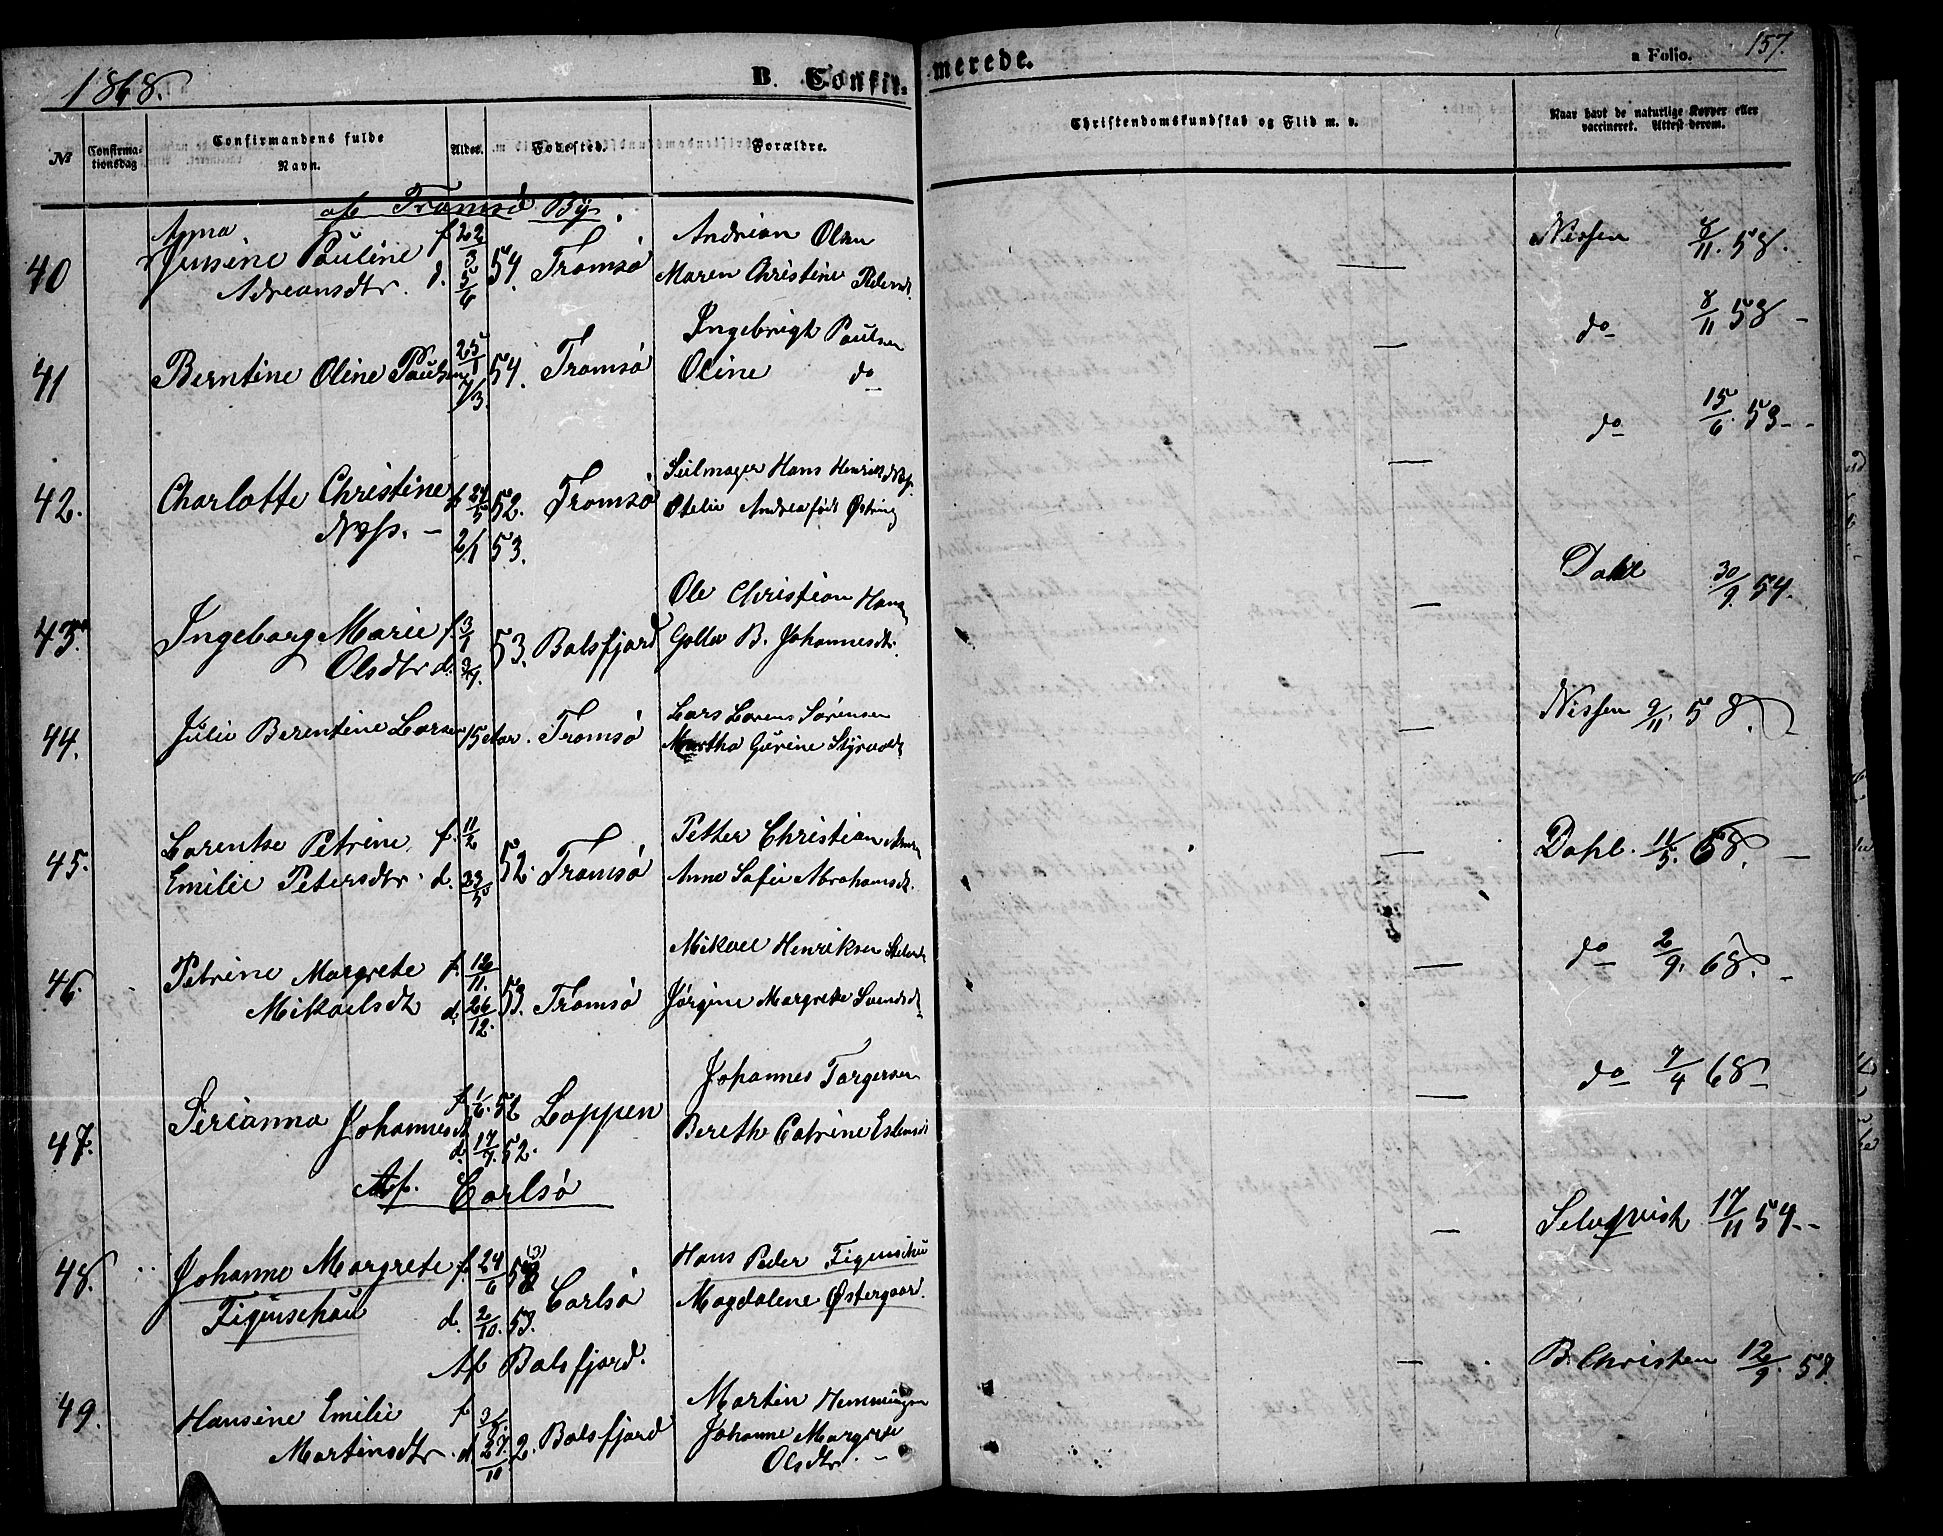 1868.
B. Confir-
merede.
a Folio. 157.
No
Confirma-
tionsdag
Confirmandens fulde
Navn.
Alder.
Fødested.
Forældre.
Christendomskundskab og Flid m. v.
Naar havt de naturlige Kopper eller
vaccineret. Attest derom.
af Tromsø By.
40 Anna
Jensine Pauline f. 22/3 54. Tromsø
Adreansdtr. d. 5/6
Andrian Olsen
Maren Christine
— Nissen 8/11. 58.
41 Berntine Oline Paulsen 25/1 54. Tromsø
7/3.
Ingebrigt Paulsen
Oline do
— do 8/11 58 –
42. Charlotte Christine f. 24/5 52. Tromsø
Næss. – 2/1 53.
Seilmager Hans Henrik Næss.
Otelie Andrea født Østring
— do 15/6. 53 –
43. Ingeborg Marie f. 3/1 53. Balsfjord
Olsdtr d. 3/4.
Ole Christian Hansen
Golla B. Johannesdtr.
— Dahl 30/9. 54.
44. Julie Berentine Larsen 15 Aar. Tromsø
Lars Lorens Sørensen
Martha Gurine
— Nissen 9/11. 58.
45. Larentse Petrine f. 11/2 52. Tromsø
Emilie Petersdtr. d. 23/5
Petter Christian
Anne Sofie Abrahamsdt.
— Dahl. 11/5. 68. –
46. Petrine Margrete f. 12/11. 53. Tromsø
Mikaelsdt d. 26/12.
Mikael Henriksen
Jørgine Margrete Svendsdt
— do 2/9. 68. –
47. Serianna Johannesdt f. 1/6. 52 Loppen
d. 17/7. 52.
Johannes Torgersen
Bereth Catrine Estensdt
— do 7/4 68 –
Af. Carlsø
48. Johanne Margrete f. 24/6 53 (3) Carlsø
Figenschau d. 2/10. 53.
Hans Peder Figenschu
Magdalene Østergaard.
— Selqvist 17/11 54 –
Af Balsfjord.
49. Hansine Emilie f. 3/8. 52. Balsfjord
Martinsdtr. d. 27/10
Martin Hemmingsen
Johanne Margrete
Olsdtr. –
— B. Christen 12/9. 57.